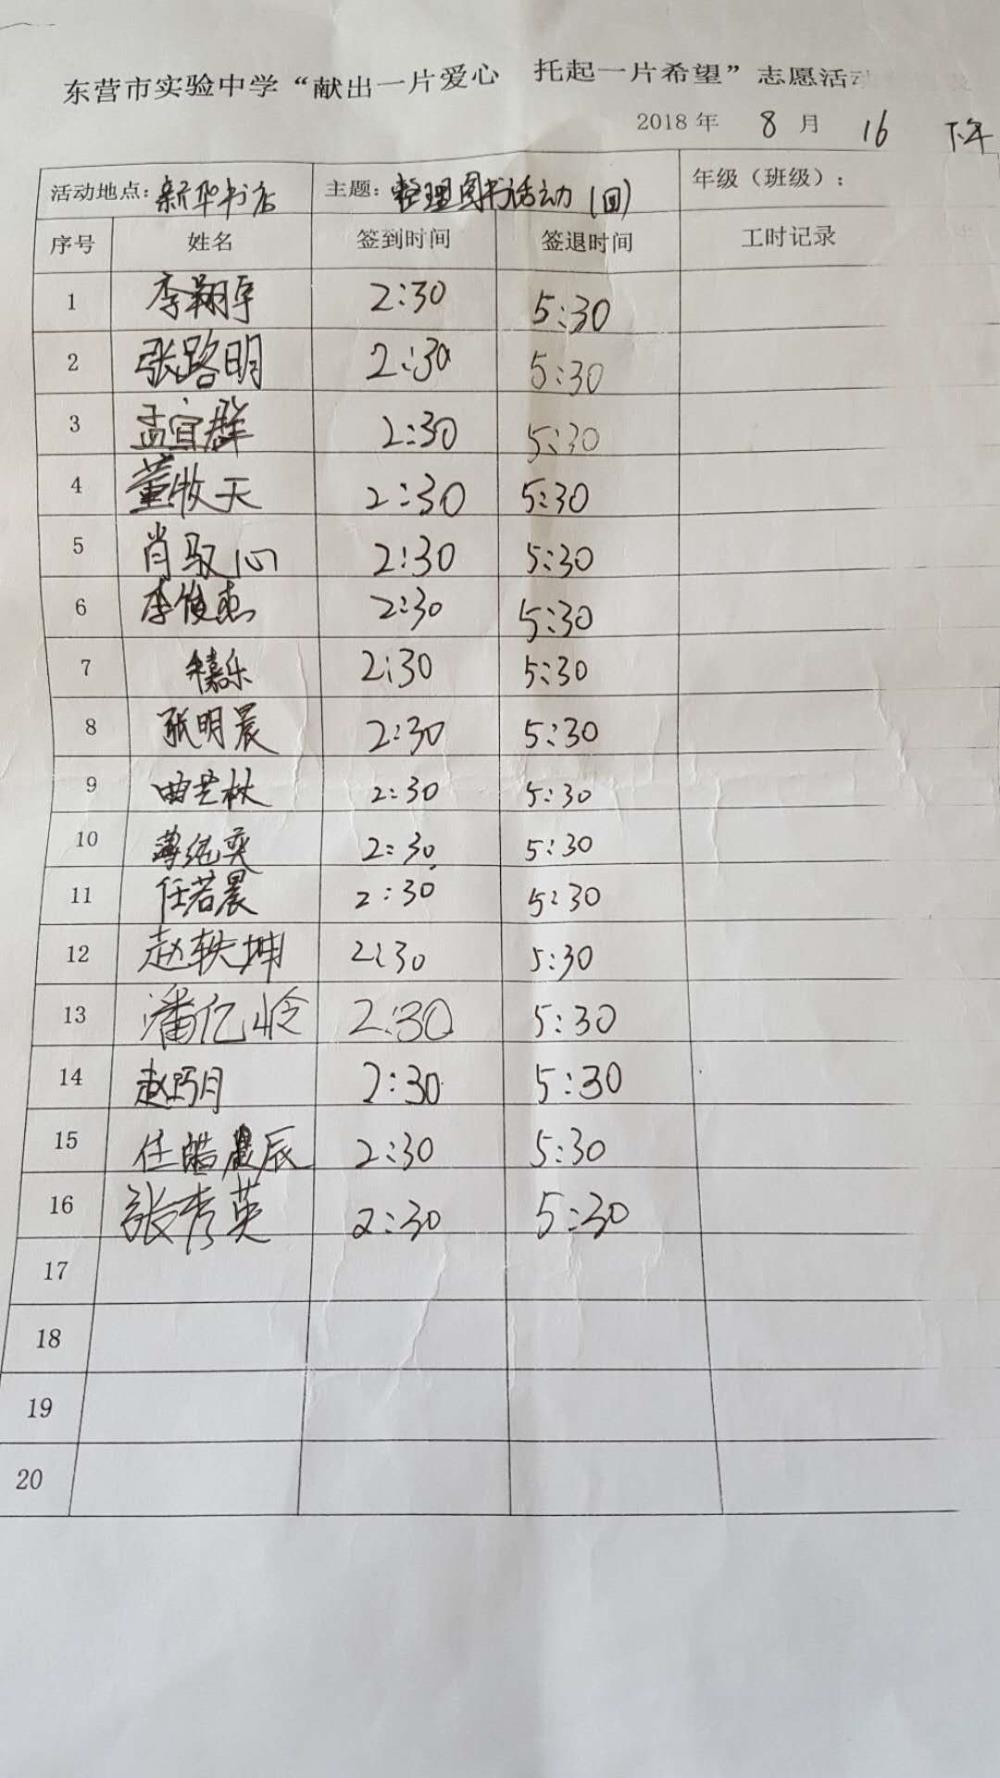 东营市实验中学“献出一片爱心 托起一片希望”志愿活动
2018 年 8 月 16 下午
活动地点：新华书店 主题：整理图书活动（四） 年级（班级）：
序号 姓名 签到时间 签退时间 工时记录
1 李翔宇 2:30 5:30
2 张路明 2:30 5:30
3 孟宜群 2:30 5:30
4 董牧天 2:30 5:30
5 肖驭心 2:30 5:30
6 李俊杰 2:30 5:30
7 2:30 5:30
8 张明晨 2:30 5:30
9 曲艺林 2:30 5:30
10 薄纯奕 2:30 5:30
11 任若晨 2:30 5:30
12 赵轶坤 2:30 5:30
13 潘亿岭 2:30 5:30
14 2:30 5:30
15 任皓辰 2:30 5:30
16 张秀英 2:30 5:30
17
18
19
20